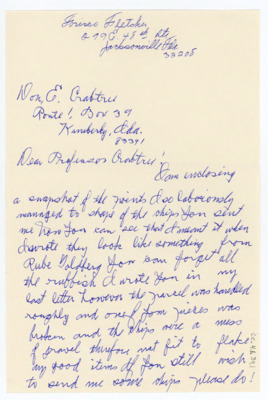 Fletcher
Jacksonville Fla
32208
Don, E. Crabtree
Route 1, Box 39
Kimberly, Ida.
83341
Dear Professor Crabtree!
I am enclosing
a snapshot of the points I so laboriously
managed to shape of the chips you sent
me now you can see that I meant it when
I wrote they look like something from
Rube Goldberg you can forget all
the rubbish I wrote you in my
last letter however the parcel was handled
roughly and one of your pieces was
broken and the chips were a mess
of gravel therefore not fit to flake
my good items if you still wish
to send me some chips please do!